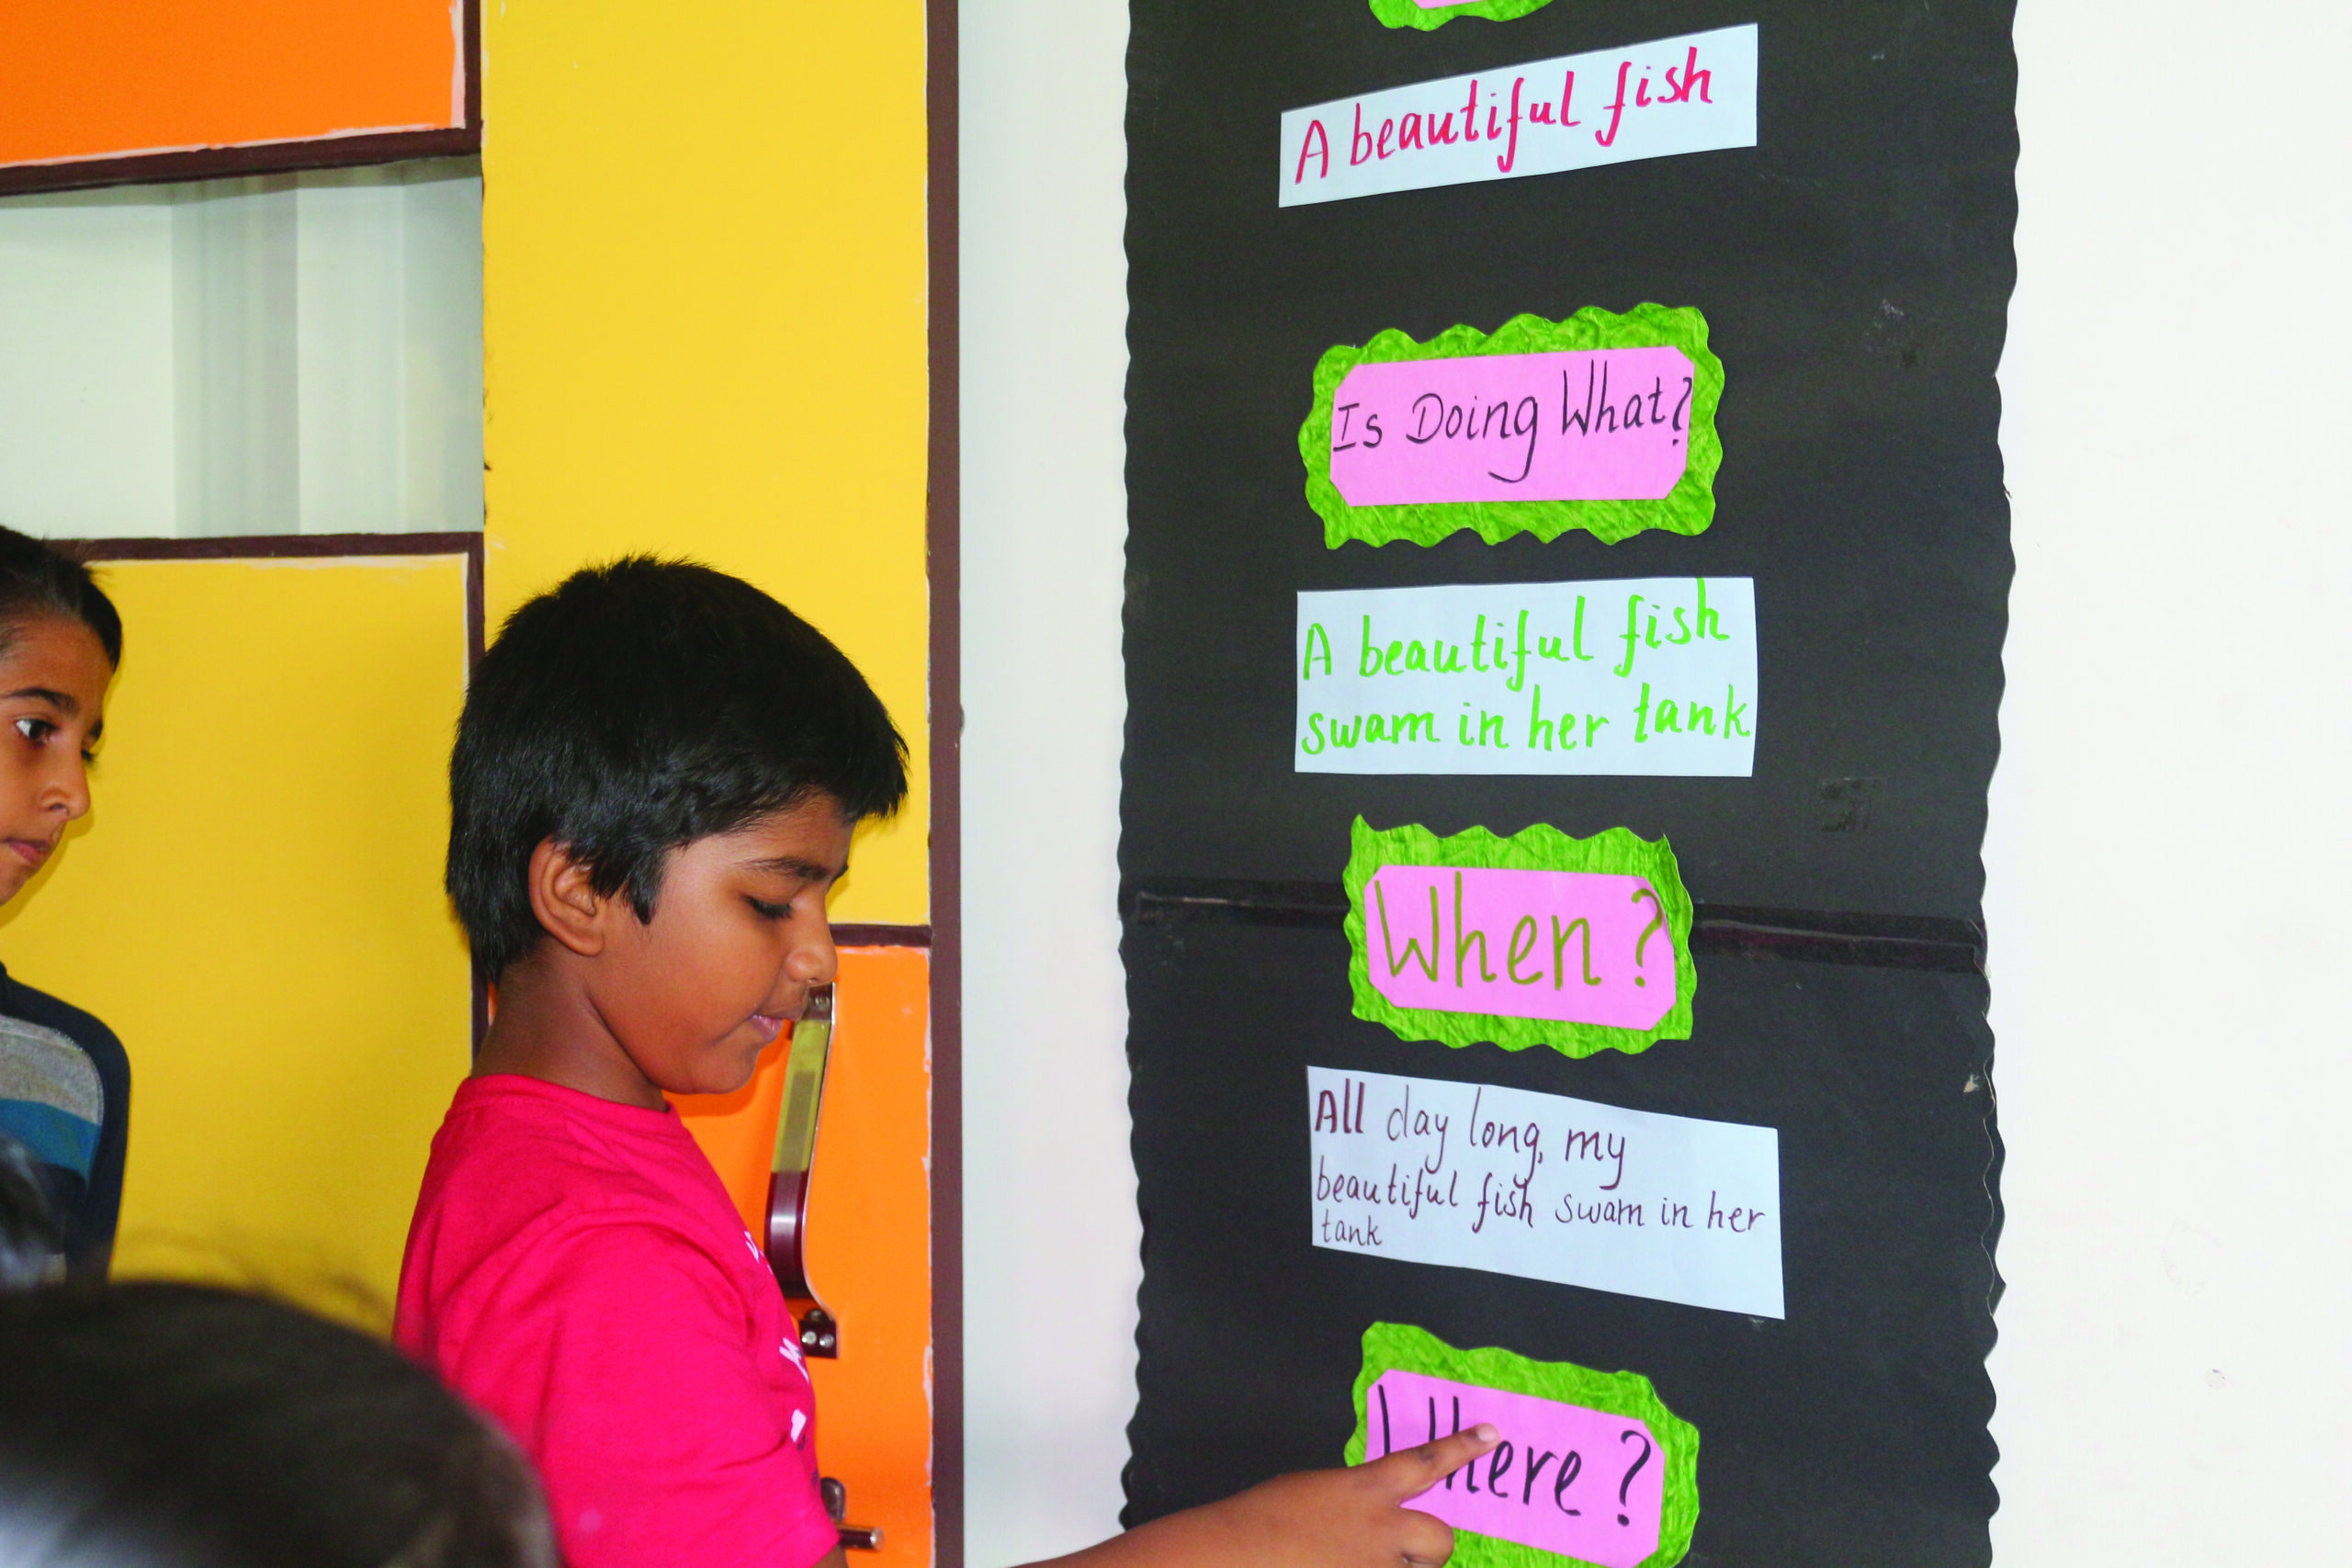 A beautiful fish
Is Doing What?
A beautiful fish
swam in her tank
When?
All day long, my
beautiful fish swam in her
tank
Where?